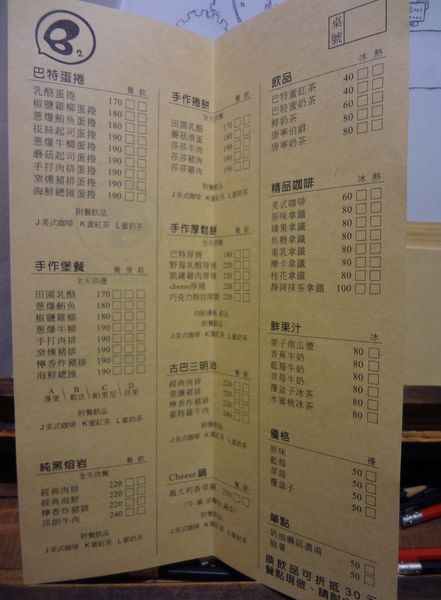 B2
巴特蛋捲 餐 飲
乳酪蛋捲 170
椒鹽雞柳蛋捲 180
蔥爆鮪魚蛋捲 180
拔絲起司蛋捲 190
蔥爆牛柳蛋捲 190
蘑菇起司蛋捲 190
手打肉排蛋捲 190
窯燻豬排蛋捲 190
海鮮總匯蛋捲 190
附餐飲品
J美式咖啡 K蜜紅茶 L蜜奶茶
手作堡餐 餐 堡 飲
全天供應
田園乳酪 170
蔥爆鮪魚 180
椒鹽雞柳 180
蔥爆牛柳 190
手打肉排 190
窯燻豬排 190
檸香炸豬排 190
海鮮總匯 190
A B C D
漢堡 軟法 帕里尼 貝果
附餐飲品
J美式咖啡 K蜜紅茶 L蜜奶茶
純黑熔岩 餐 飲
全天供餐
經典肉排 220
經典海鮮 220
檸香炸豬排 220
莎朗牛肉 240
附餐飲品
J美式咖啡 K蜜紅茶 L蜜奶茶
手作捲餅 餐 飲
全天供餐
田園乳酪 170
蘑菇滑蛋 180
莎莎牛肉 190
莎莎豬肉 190
莎莎雞肉 190
附餐飲品
J美式咖啡 K蜜紅茶 L蜜奶茶
手作厚鬆餅 餐 飲
全天供餐
巴特厚燒 190
野莓乳酪厚燒 220
凱薩雞肉厚燒 220
cheese厚燒 220
巧克力熔岩厚燒 220
附餐飲品
J美式咖啡 K蜜紅茶 L蜜奶茶
古巴三明治 餐 飲
經典肉排 220
窯燻豬排 220
檸香炸豬排 220
蒙特羅牛肉 240
附餐飲品
J美式咖啡 K蜜紅茶 L蜜奶茶
Cheese鍋 餐 飲
義大利香草鍋 270
附餐飲品
J美式咖啡 K蜜紅茶 L蜜奶茶
桌號
飲品 冰 熱
巴特蜜紅茶 40
巴特蜜奶茶 40
鮮奶茶 60
唐寧伯爵 80
唐寧奶茶 80
精品咖啡 冰 熱
美式咖啡 60
原味拿鐵 80
榛果拿鐵 80
焦糖拿鐵 80
重乳拿鐵 80
摩卡拿鐵 80
桂花拿鐵 80
靜岡抹茶拿鐵 100
鮮果汁 冰
栗子南瓜漿 80
香蕉牛奶 80
藍莓牛奶 80
草莓牛奶 80
覆盆子冰茶 80
水蜜桃冰茶 80
優格 優
原味 50
藍莓 50
草莓 50
覆盆子 50
單點
奶油蘑菇濃湯 50
脆薯 50
換飲品可折抵30元
餐點現做、請耐